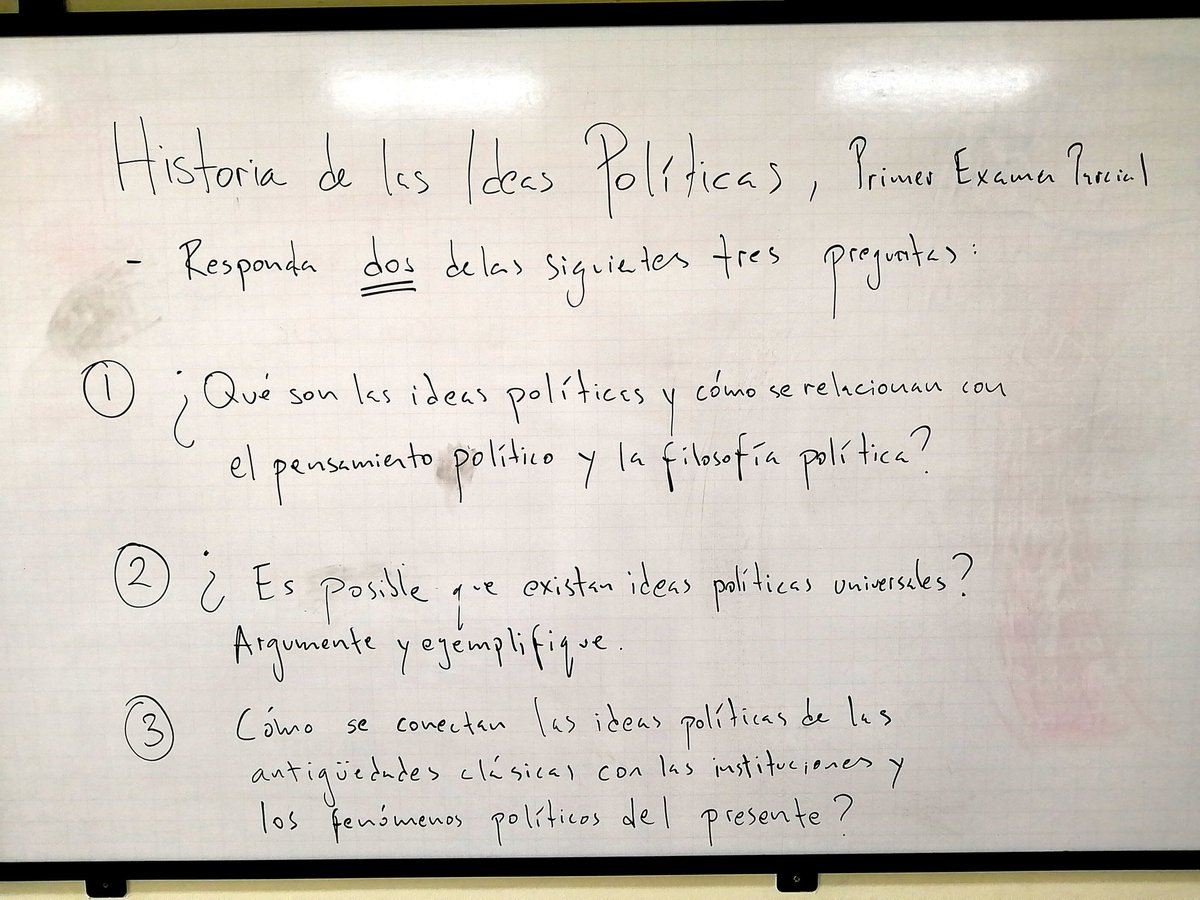 Historia de las Ideas Políticas, Primer Examen Parcial
- Responda dos de las siguientes tres preguntas:
1 ¿Qué son las ideas políticas y cómo se relacionan con
el pensamiento político y la filosofía política?
2 ¿Es posible que existan ideas políticas universales?
Argumente y ejemplifique.
3 Cómo se conectan las ideas políticas de las
antigüedades clásicas con las instituciones y
los fenómenos políticos del presente?